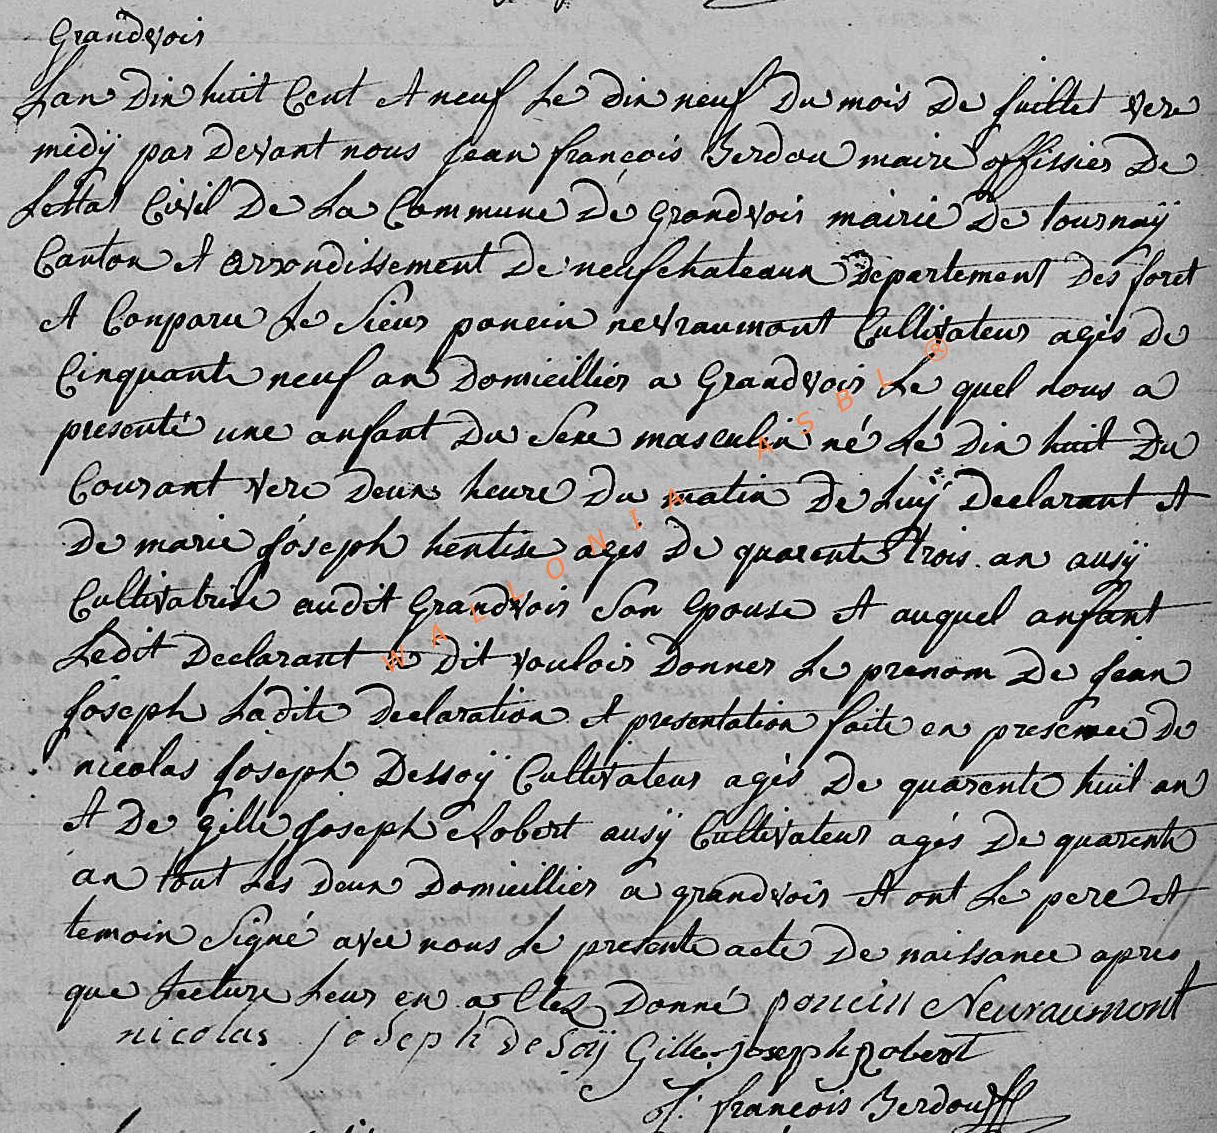 Grandvoir
Lan Dix huit Cent et neuf Le dix neuf Du mois De juillet vere
midÿ par Devant nous jean françois Berdou maire offissier De
Lettat Civil De La Commune De grandvoir mairie De tournaÿ
Canton et arrondissement De neufchateaux Departement Des foret
et Comparu Le Sieur poncin nevraumont Cultivateur agés de
Cinquante neuf an Domicillier a Grandvoir Le quel nous a
presenté une anfant Du Sexe masculin né Le Dix huit Du
Courant vere Deux heure Du matin De Luÿ Declarant et
De marie joseph hentise agés De quarente trois an ausÿ
Cultivatrise audit Grandvoir Son epouse et auquel anfant
Ledit Declarant a Dit vouloir Donner Le prenom De jean
joseph Ladite Declaration et presentation faite en presence De
nicolas joseph Dessoÿ Cultivateur agés De quarente huit an
et De gille joseph Robert ausÿ Cultivateur agés De quarente
an tout Les Deux Domicillier a grandvoir et ont Le pere et
temoin Signé avec nous Le presente acte De naissance apres
que Lecture Leur en a Ettez Donné poncin Neuraumont
nicolas joseph de Soÿ Gille joseph Robert
J. françois Berdou
WALLONIA ASBL ®